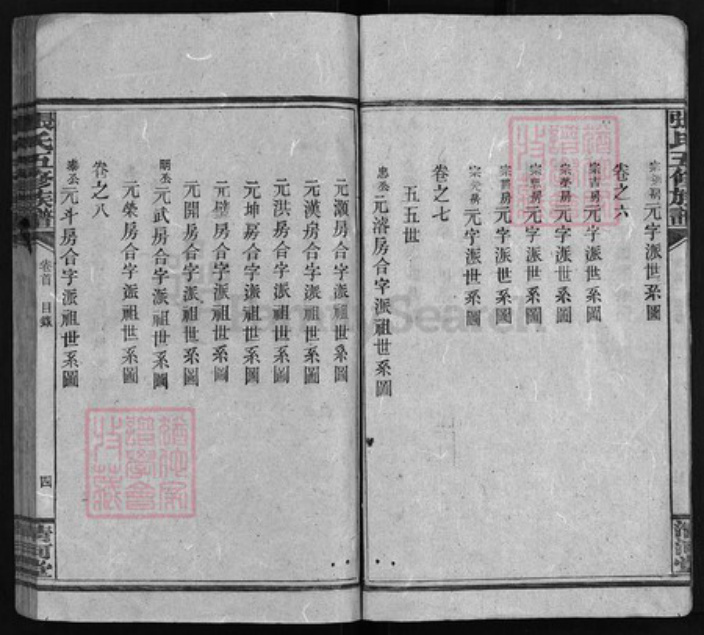 張氏五修族譜
元字派世系圖
卷之六
元字派世系圖
元字派世系圖
元字派世系圖
元字派世系圖
元字派世系圖
卷之七
五五世
忠公元濬房合字派祖世系圖
元灝房合字派祖世系圖
元漢房合字派祖世系圖
元洪房合字派祖世系圖
元坤房合字派祖世系圖
元璧房合字派祖世系圖
元開房合字派祖世系圖
明公元武房合字派祖世系圖
元榮房合字派祖世系圖
卷之八
元斗房合字派祖世系圖
張氏五修族譜
卷首 目錄
四
清河堂
清河堂